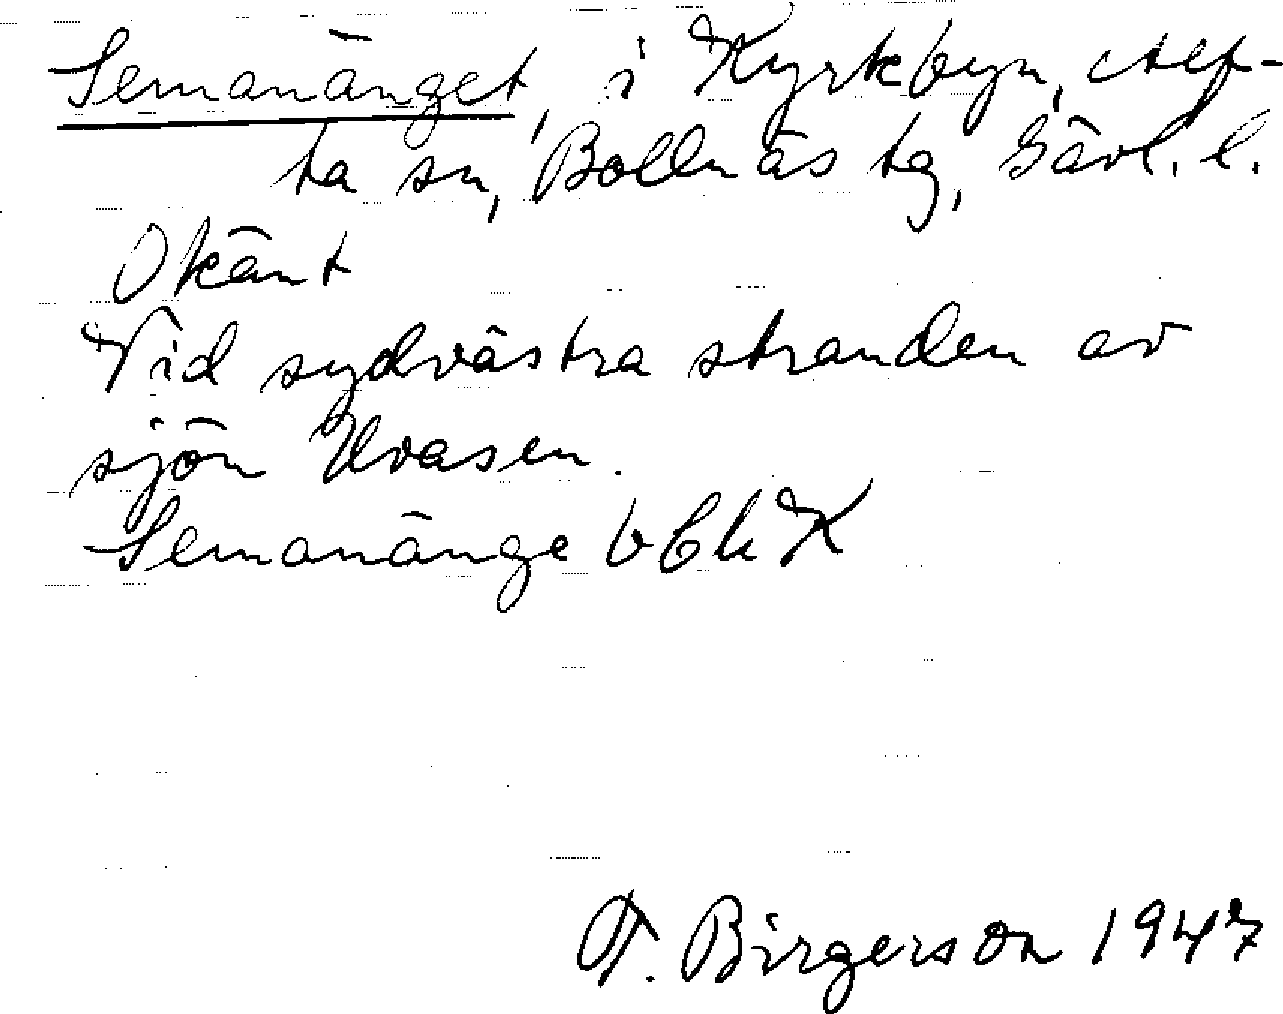 Semanänget, i Kyrkbyn, Alf-
ta sn, Bollnäs tg, Gävl. l.
Okänt
Vid sydvästra stranden av
sjön Uvasen.
Semanänge
T. Birgerson 1947